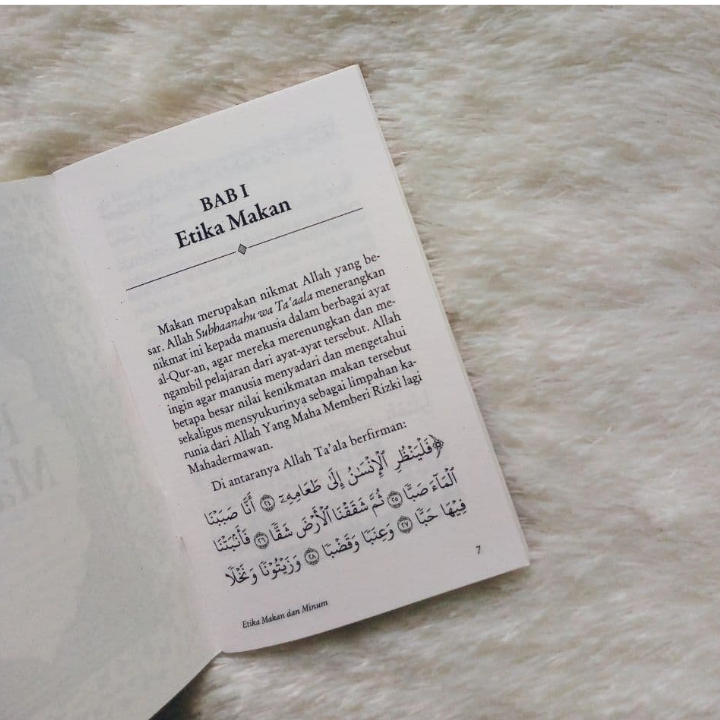 BAB I
Etika Makan
Makan merupakan nikmat Allah yang be-
sar. Allah Subhaanahu wa Ta'aala menerangkan
nikmat ini kepada manusia dalam berbagai ayat
al-Qur-an, agar mereka merenungkan dan me-
ngambil pelajaran dari ayat-ayat tersebut. Allah
ingin agar manusia menyadari dan mengetahui
betapa besar nilai kenikmatan makan tersebut
sekaligus mensyukurinya sebagai limpahan ka-
runia dari Allah Yang Maha Memberi Rizki lagi
Mahadermawan.
Di antaranya Allah Ta'ala berfirman:
﴿فَلْيَنظُرِ ٱلْإِنسَـٰنُ إِلَىٰ طَعَامِهِۦٓ ٢٤ أَنَّا صَبَبْنَا
ٱلْمَآءَ صَبًّا ٢٥ ثُمَّ شَقَقْنَا ٱلْأَرْضَ شَقًّا ٢٦ فَأَنۢبَتْنَا
فِيهَا حَبًّا ٢٧ وَعِنَبًا وَقَضْبًا ٢٨ وَزَيْتُونًا وَنَخْلًا
Etika Makan dan Minum
7